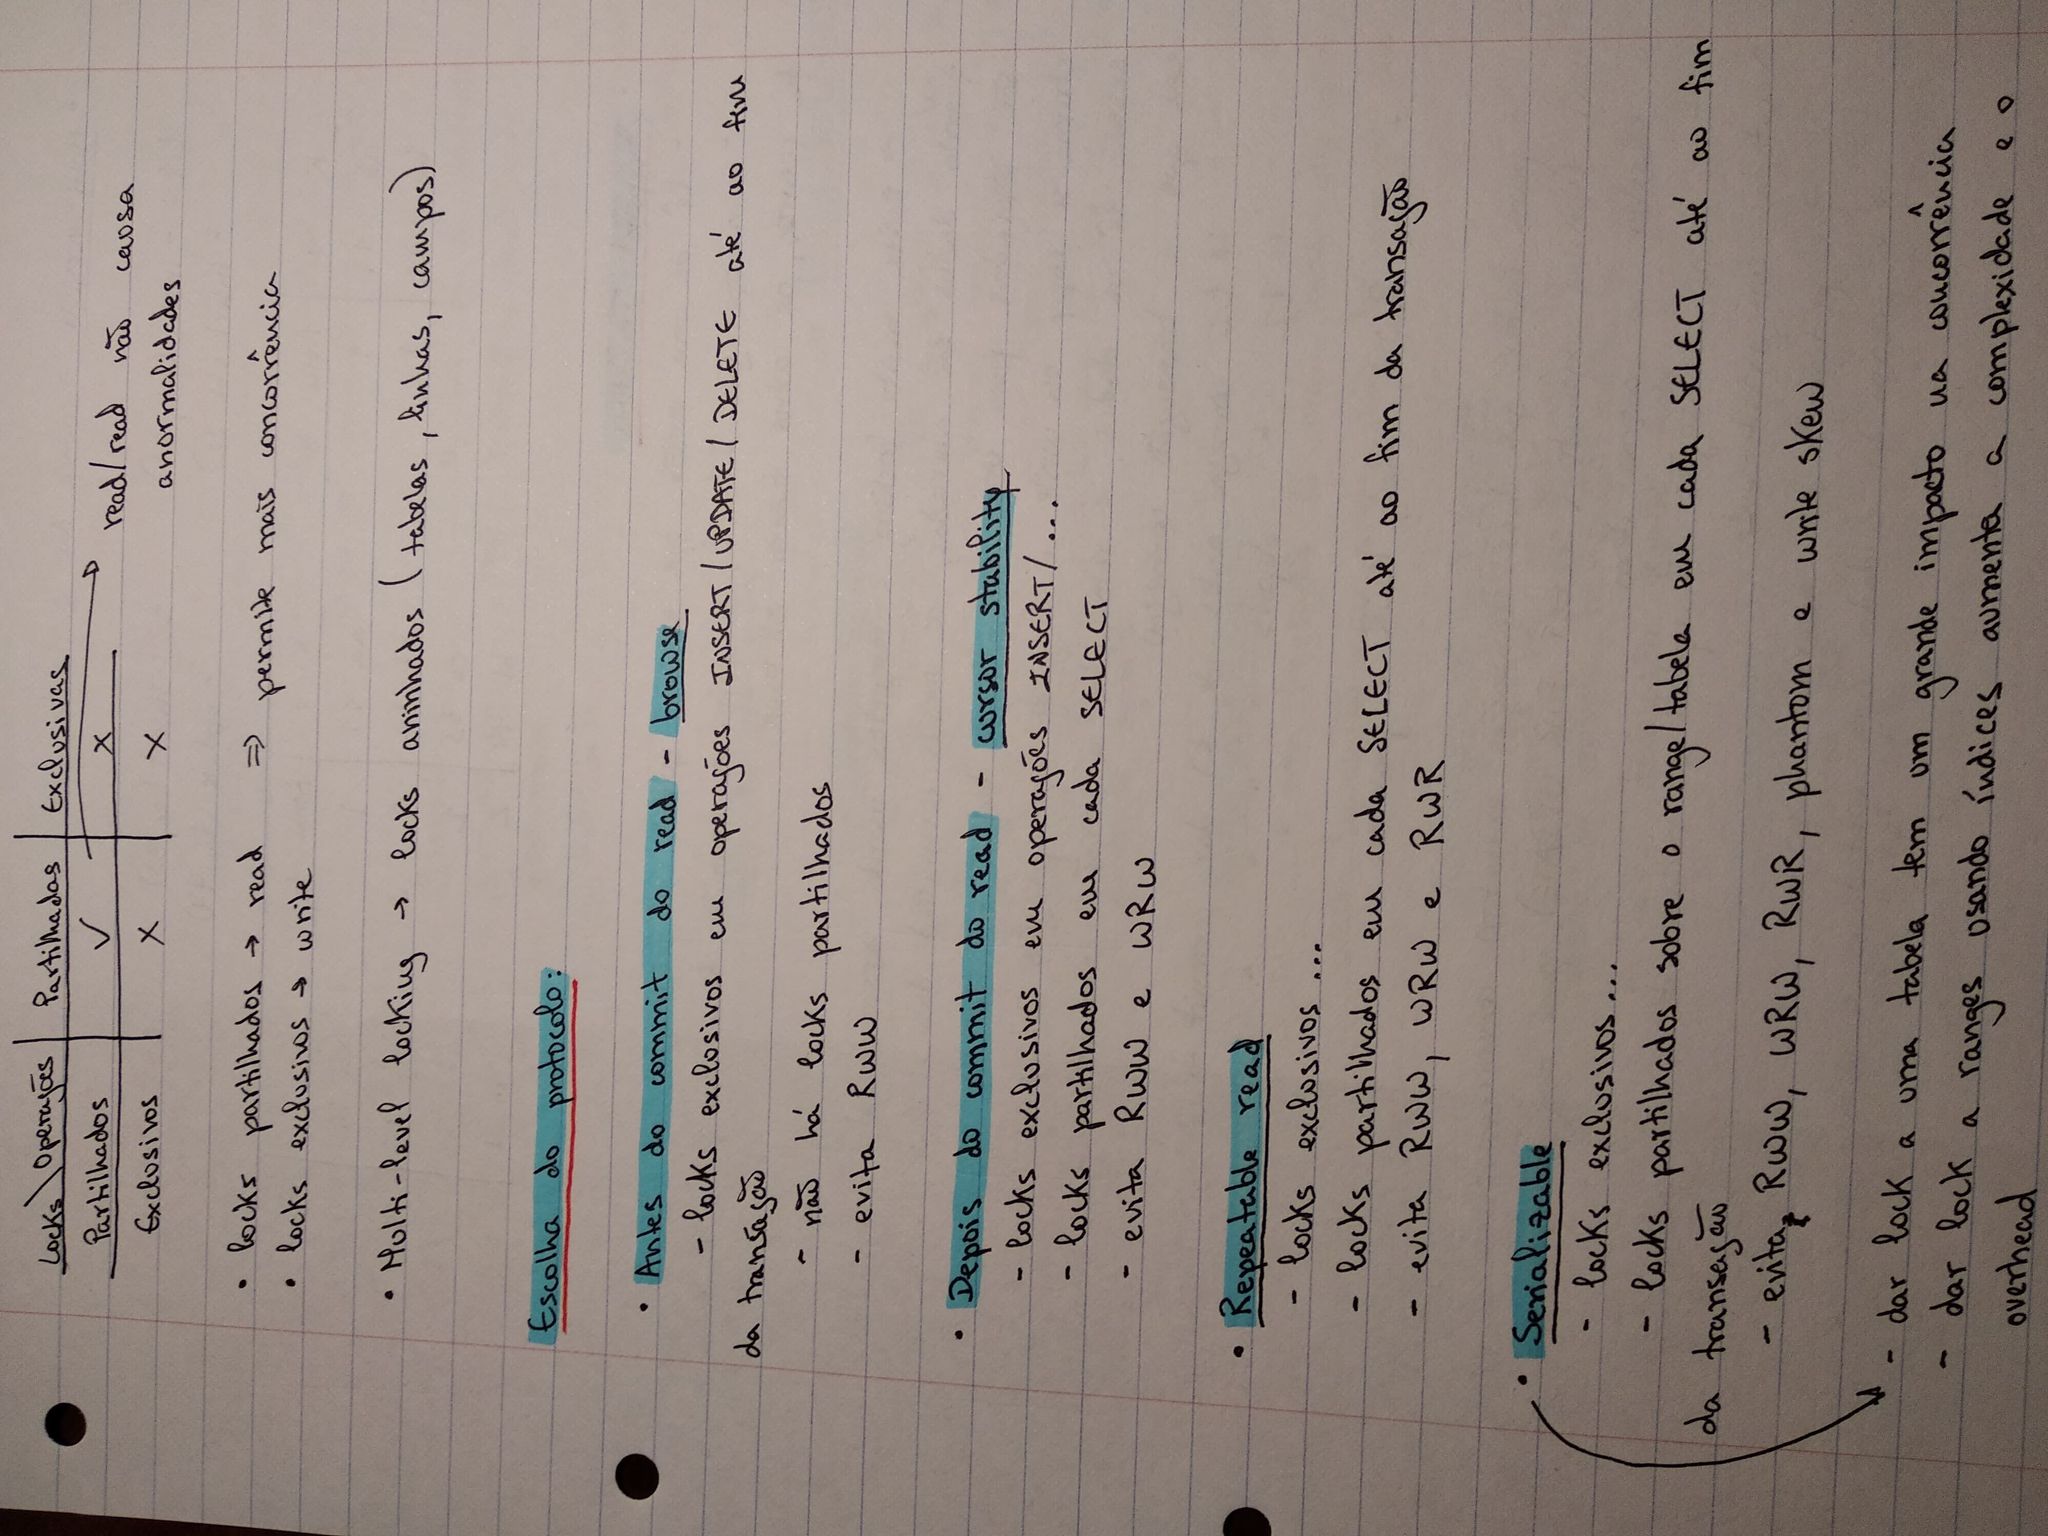 Locks \ Operações | Partilhadas | Exclusivas
Partilhados | ✓ | x → read/read não causa
anormalidades
Exclusivos | x | x
• locks partilhados → read ⇒ permite mais concorrência
• locks exclusivos → write
• Multi-level locking → locks aninhados (tabelas, linhas, campos)
Escolha do protocolo:
• Antes do commit do read - browse
- locks exclusivos em operações INSERT/UPDATE/DELETE até ao fim
da transação
- não há locks partilhados
- evita RWW
• Depois do commit do read - cursor stability
- locks exclusivos em operações INSERT/...
- locks partilhados em cada SELECT
- evita RWW e WRW
• Repeatable read
- locks exclusivos...
- locks partilhados em cada SELECT até ao fim da transação
- evita RWW, WRW e RWR
• Serializable
- locks exclusivos...
- locks partilhados sobre o range/tabela em cada SELECT até ao fim
da transação
- evita RWW, WRW, RWR, phantom e write skew
- dar lock a uma tabela tem um grande impacto na concorrência
- dar lock a ranges usando índices aumenta a complexidade e o
overhead